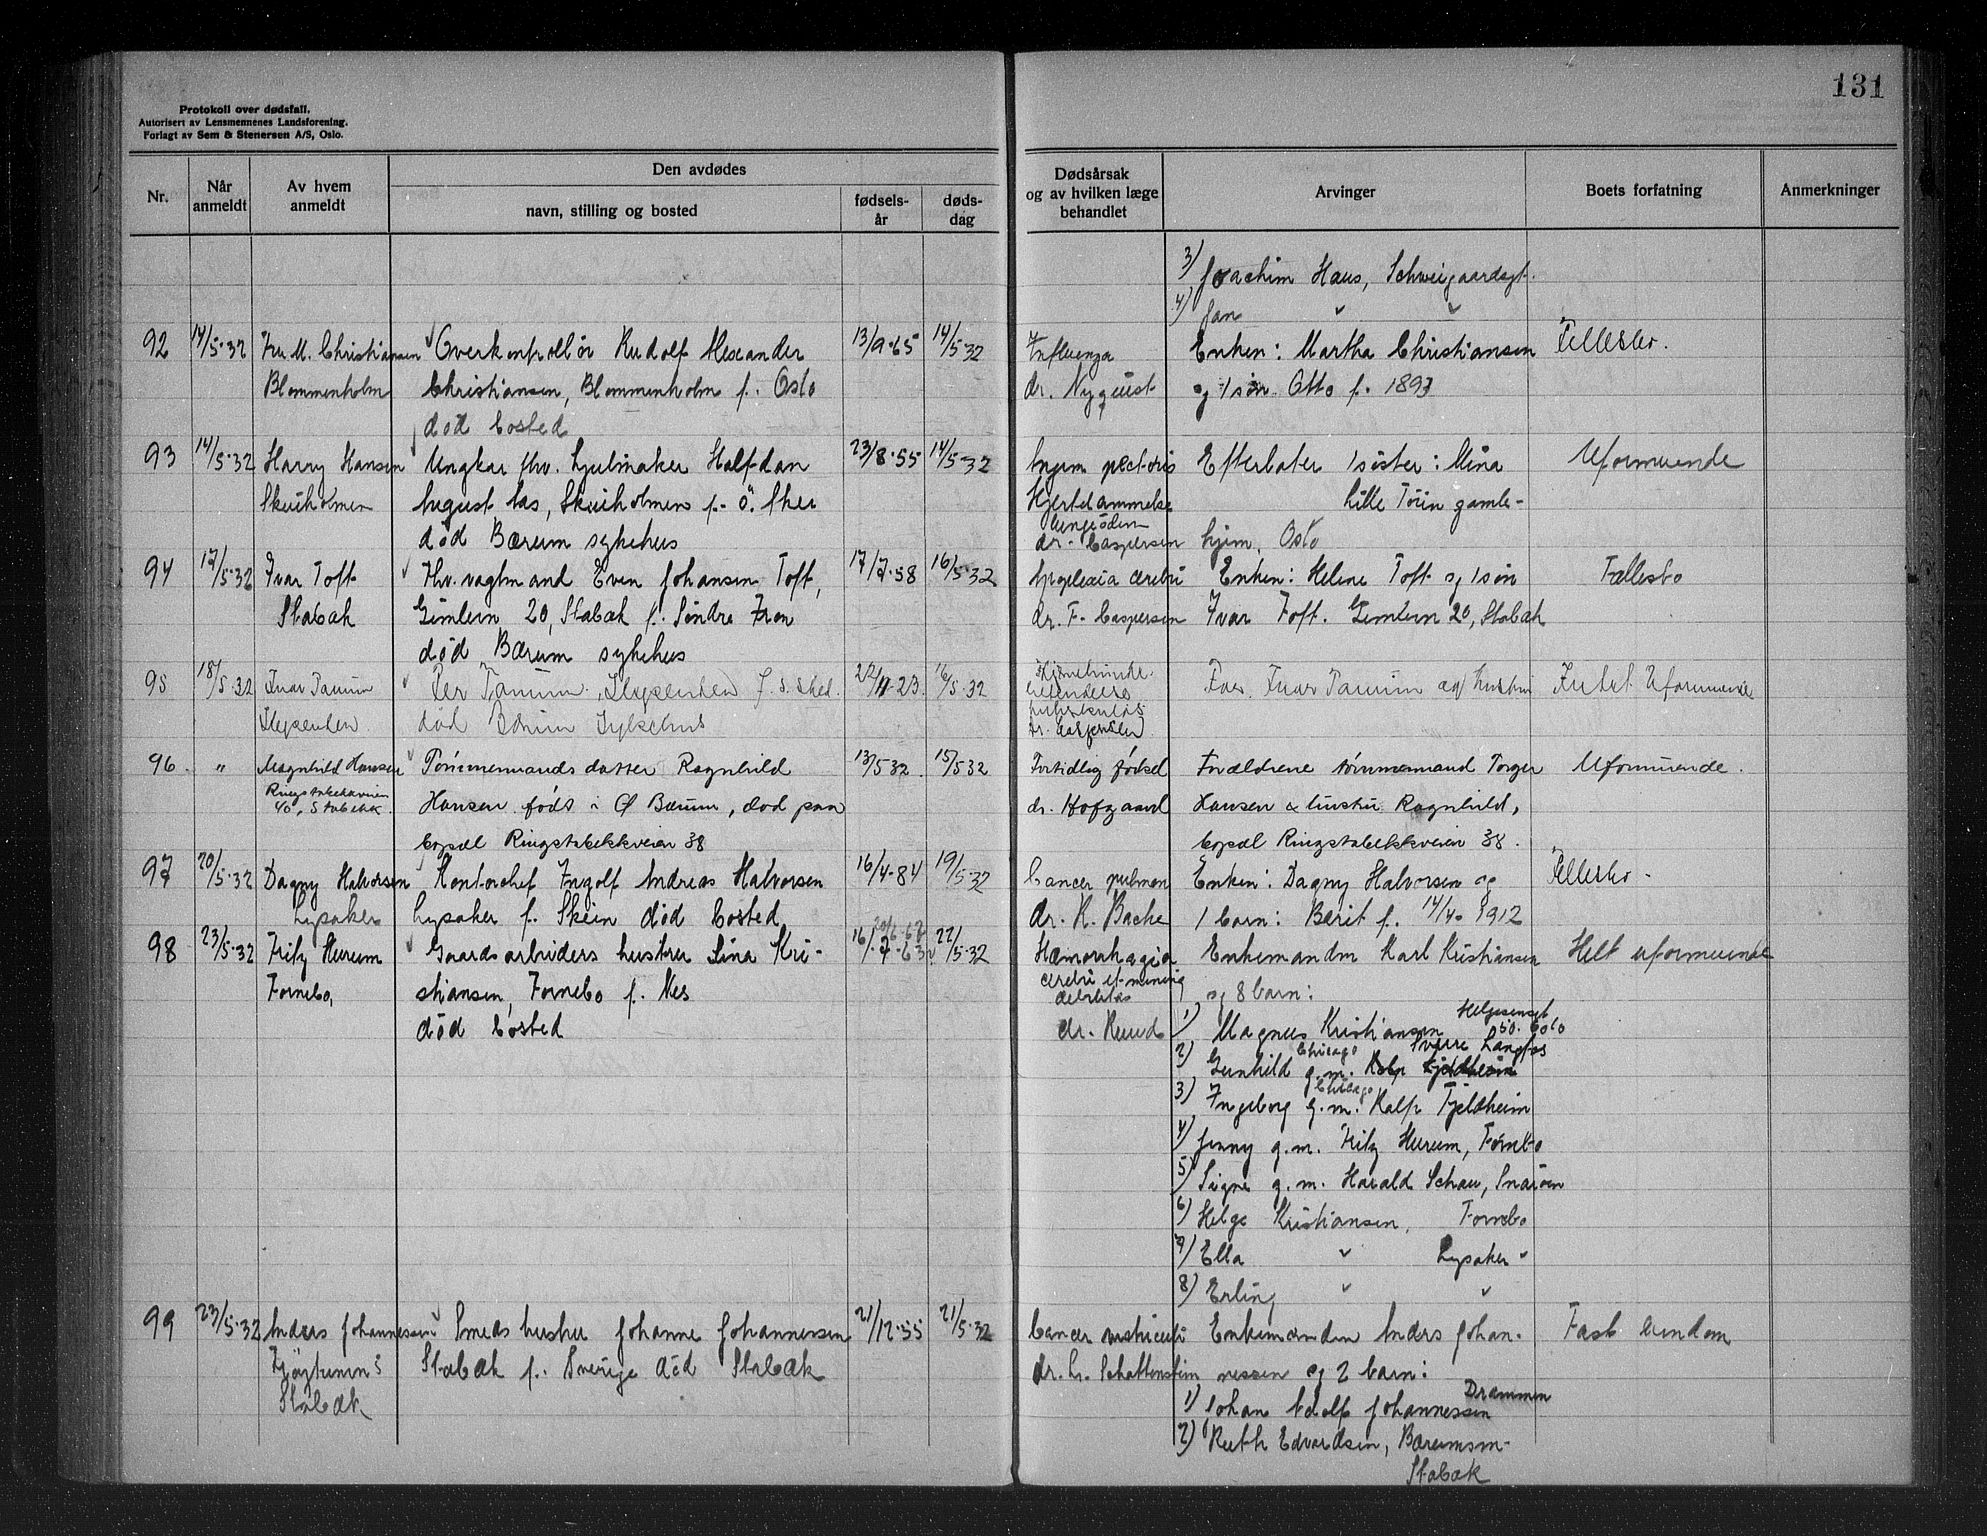 131
Protokoll over dødsfall.
Autorisert av Lensmennenes Landsforening.
Forlagt av Sem & Stenersen A/S, Oslo.
Nr.
Når anmeldt
Av hvem anmeldt
Den avdødes
navn, stilling og bosted
fødsels-år
døds-dag
Dødsårsak og av hvilken læge behandlet
Arvinger
Boets forfatning
Anmerkninger
3) Joachim Haus, Schweigaardsgt.
4) Jan " "
92 14/5-32 Fru M. Christiansen Overkontrollör Rudolf Alexander 13/9-65 14/5-32 Influenza Enken: Martha Christiansen Fellesbo.
Blommenholm Christiansen, Blommenholm f. Oslo dr. Nyquist og 1 sön Otto f. 1893
död bosted
93 14/5-32 Harry Hansen Ungkar fhv. hjulmaker Halfdan 23/8-55 14/5-32 Angina pectoris Efterlater 1 søster: Mina Uformuende
Skuiholmen August Aas, Skuiholmen f. Ö. Aker Hjertelammelse Lille Töien gamle-
död Bærum sykehus lungeödem dr. Caspersen hjem, Oslo
94 17/5-32 Ivar Toft Fhv. vagtmand Even Johansen Toft, 17/7-58 16/5-32 Apoplexia cerebri Enken: Helene Toft og 1 sön Fællesbo
Stabæk Gimlevn 20, Stabæk f. Söndre Fron dr. F. Caspersen Ivar Toft. Gimlevn 20, Stabæk
död Bærum sykehus
95 18/5-32 Ivar Tanum Per Tanum, Slependen f. s. sted. 22/11-23. 16/5-32 Hjernehinde- Far Ivar Tanum og hustru Intet Uformuende
Slependen död Bærum Sykehus betendelse tuberkuløs dr. Caspersen
96 " Magnhild Hansen Tömmermands datter Ragnhild 13/5 32. 15/5 32 Fortidlig fødsel Forældrene tömmermand Torger Uformuende.
Ringstabekkveien 40, Stabekk. Hansen født i Ø Bærum, død paa dr. Hofgaard Hansen & hustru Ragnhild,
bopæl Ringstabekkveien 38 bopæl Ringstabekkveien 38.
97 20/5-32 Dagny Halvorsen Kontorchef Ingolf Andreas Halvorsen 16/4-84 19/5-32 Cancer pulmon Enken: Dagny Halvorsen og Fellesbo.
Lysaker Lysaker f. Skien död bosted dr. K. Bache 1 barn: Berit f. 14/4- 1912
98 23/5-32 Fritz Hurum Gaardsarbeiders hustru Lina Kri- 16/7-63 22/5-32 Hæmorrhagia Enkemanden Karl Kristiansen Helt uformuende
Fornebo, stiansen, Fornebo f. Nes cerebri et mening debilitas og 8 barn:
död bosted dr. Ruud 1) Magnus Kristiansen Helgesensgt 50. Oslo
2) Gunhild g.m. Chicago Sverre Langfos
3) Ingeborg g.m. Chicago Ralp Fjeldheim
4) Jenny g.m. Fritz Hurum, Fornebo
5) Signe g.m. Harald Schau, Snaröen
6) Helge Kristiansen, Fornebo
7) Ella " Lysaker
8) Erling " "
99 23/5-32 Anders Johannessen Smeds hustru Johanne Johannessen 21/12-55 21/5-32 Cancer ventriculi Enkemanden Anders Johan- Fast eiendom
Stabæk Stabæk f. Sverige död Stabæk dr. L. Schattenstein nessen og 2 barn:
1) Johan Adolf Johannessen Drammen
2) Ruth Edvardsen, Bærumsvn. Stabæk